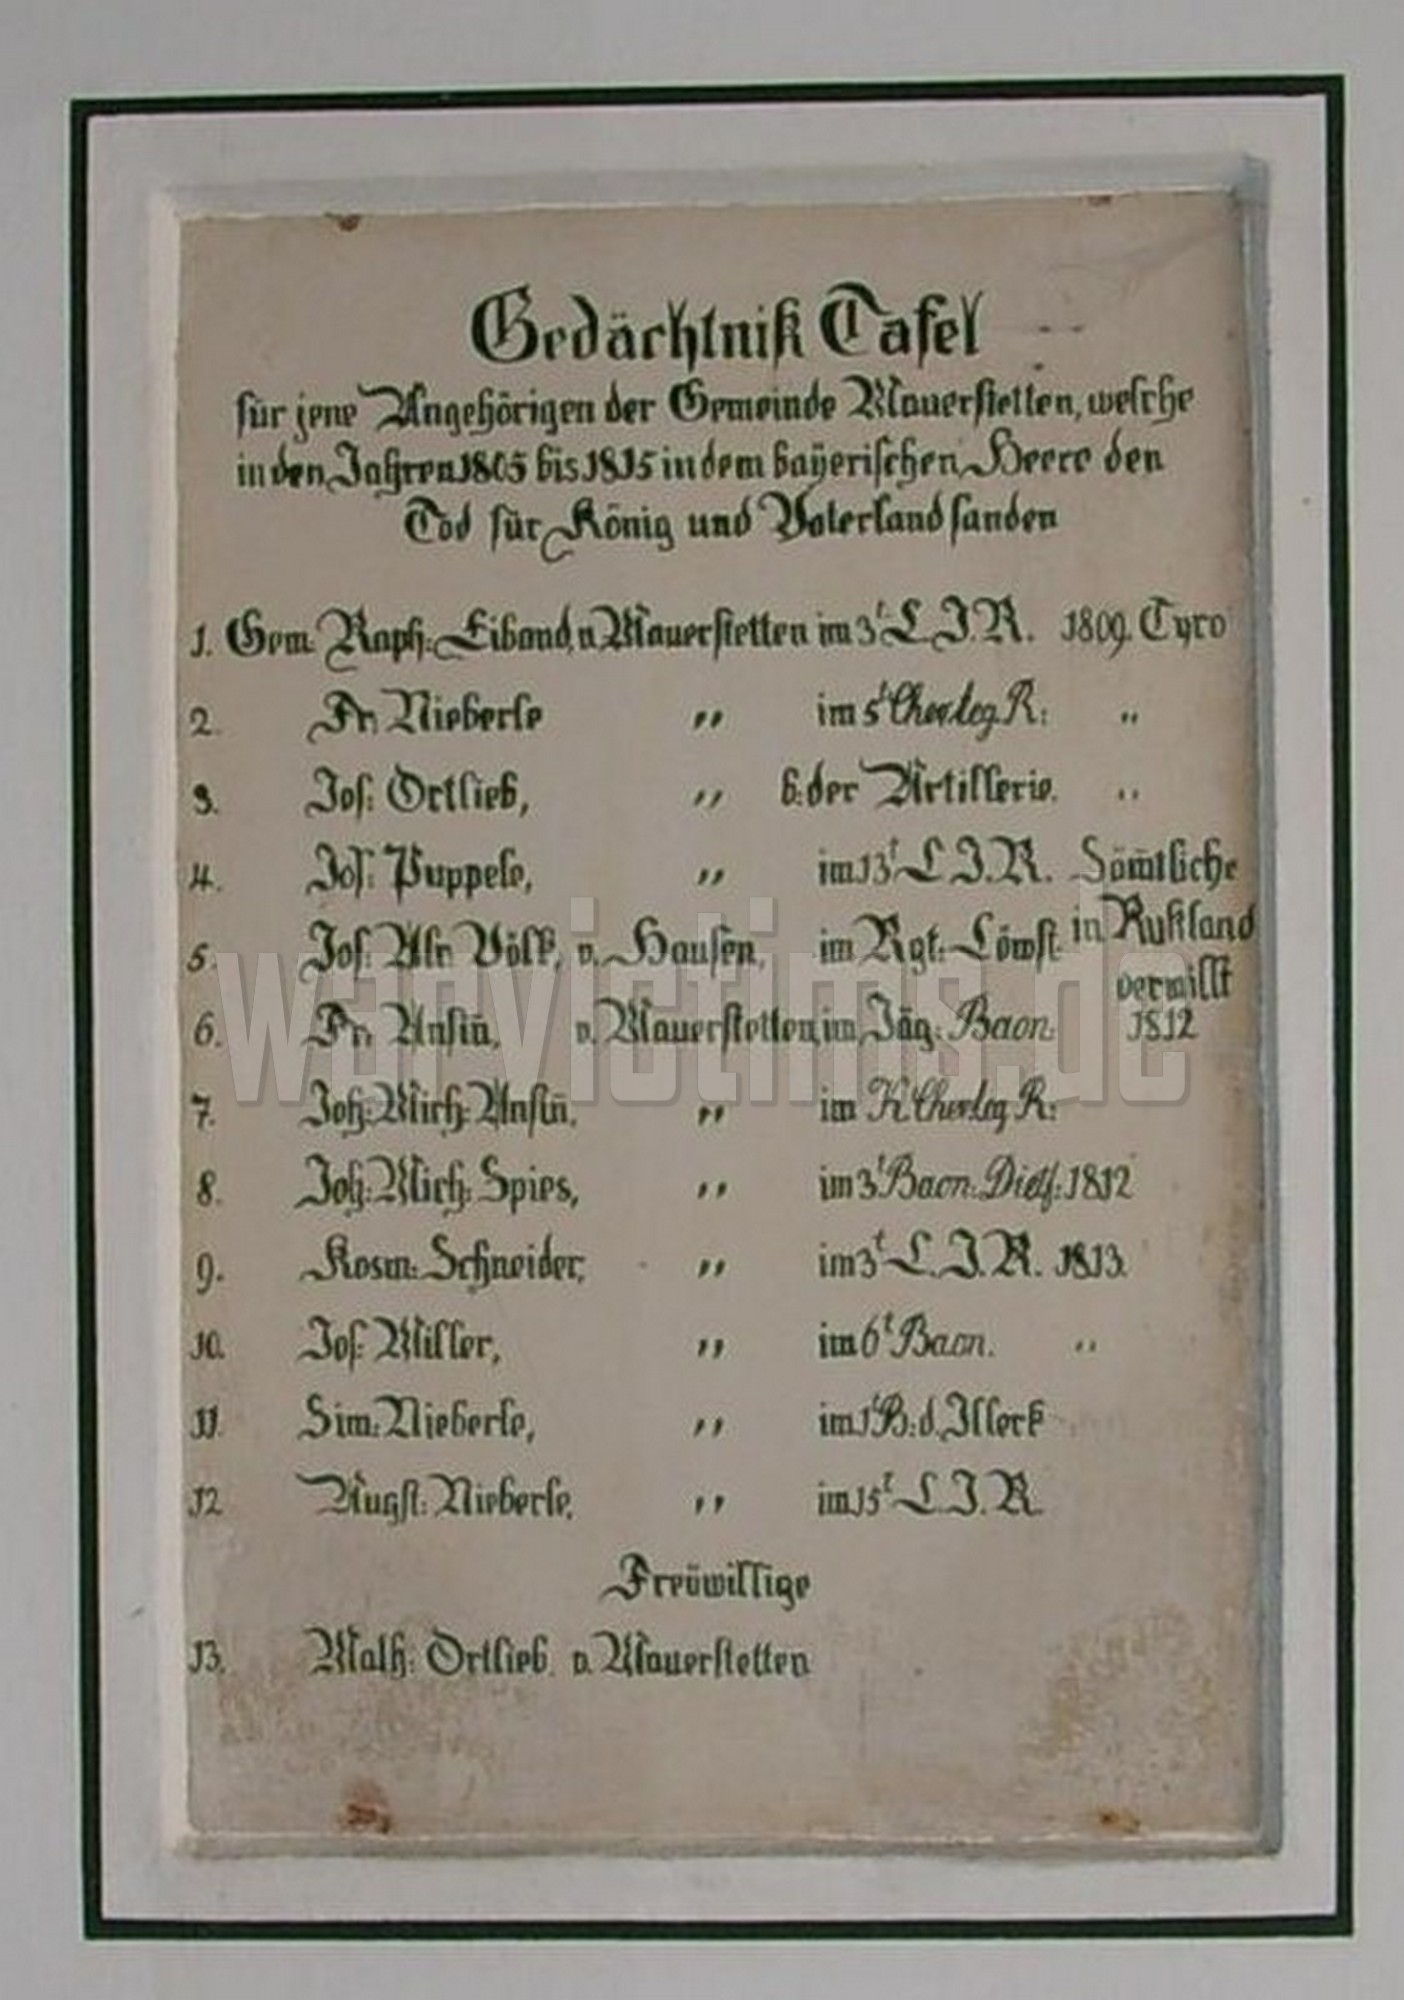 Gedächtniß Tafel
für jene Angehörigen der Gemeinde Mauerstetten, welche
in den Jahren 1805 bis 1815 in dem bayerischen Heere den
Tod für König und Vaterland fanden
1. Gem: Raph: Eiband, v. Mauerstetten im 3t L. I. R. 1809. Tyro
2. Fr: Nieberle " im 5t Chevleg R: "
3. Jos: Ortlieb, " b: der Artillerie. "
4. Jos: Puppele, " im 13t L. I. R. Sämtliche
5. Jos: Alr Völk, v. Hausen, im Rgt: Löwst: in Rußland
vermißt
6. Fr: Ansin̄, v. Mauerstetten, im Jäg: Baon: 1812
7. Joh: Mich: Ansin̄, " im K Chevleg R:
8. Joh: Mich: Spies, " im 3t Baon: Dietf: 1812
9. Kosm: Schneider, " im 3t L. I. R. 1813.
10. Jos: Miller, " im 6t Baon. "
11. Sim: Nieberle, " im 1t B: d. Illerk
12 Augst: Nieberle, " im 15t L. I. R.
Freüwillige
13. Math: Ortlieb. v. Mauerstetten
warvictims.de